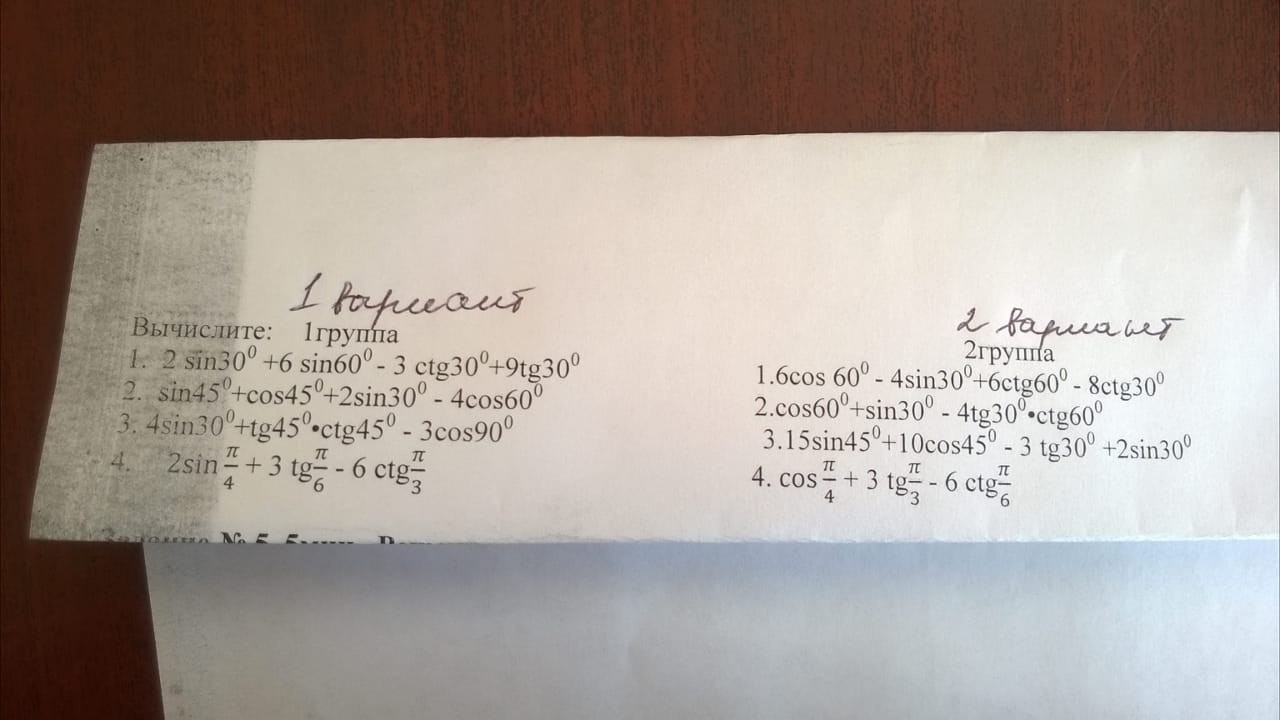 1 вариант
Вычислите: 1группа
1. 2 sin30⁰ +6 sin60⁰ - 3 ctg30⁰+9tg30⁰
2. sin45⁰+cos45⁰+2sin30⁰ - 4cos60⁰
3. 4sin30⁰+tg45⁰•ctg45⁰ - 3cos90⁰
4. 2sin π/4 + 3 tg π/6 - 6 ctg π/3
2 вариант
2группа
1.6cos 60⁰ - 4sin30⁰+6ctg60⁰ - 8ctg30⁰
2.cos60⁰+sin30⁰ - 4tg30⁰•ctg60⁰
3.15sin45⁰+10cos45⁰ - 3 tg30⁰ +2sin30⁰
4. cos π/4 + 3 tg π/3 - 6 ctg π/6